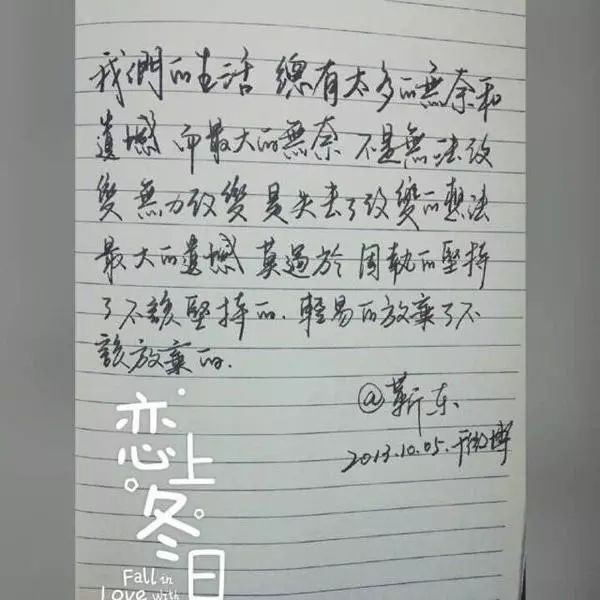 我們的生活 總有太多的無奈和
遺憾 而最大的無奈 不是無法改
變 無力改變 是失去了改變的想法
最大的遺憾 莫過於 固執的堅持
了不該堅持的.輕易的放棄了不
該放棄的.
@靳东
2013.10.05.于微博
恋上
冬日
Fall in
Love with